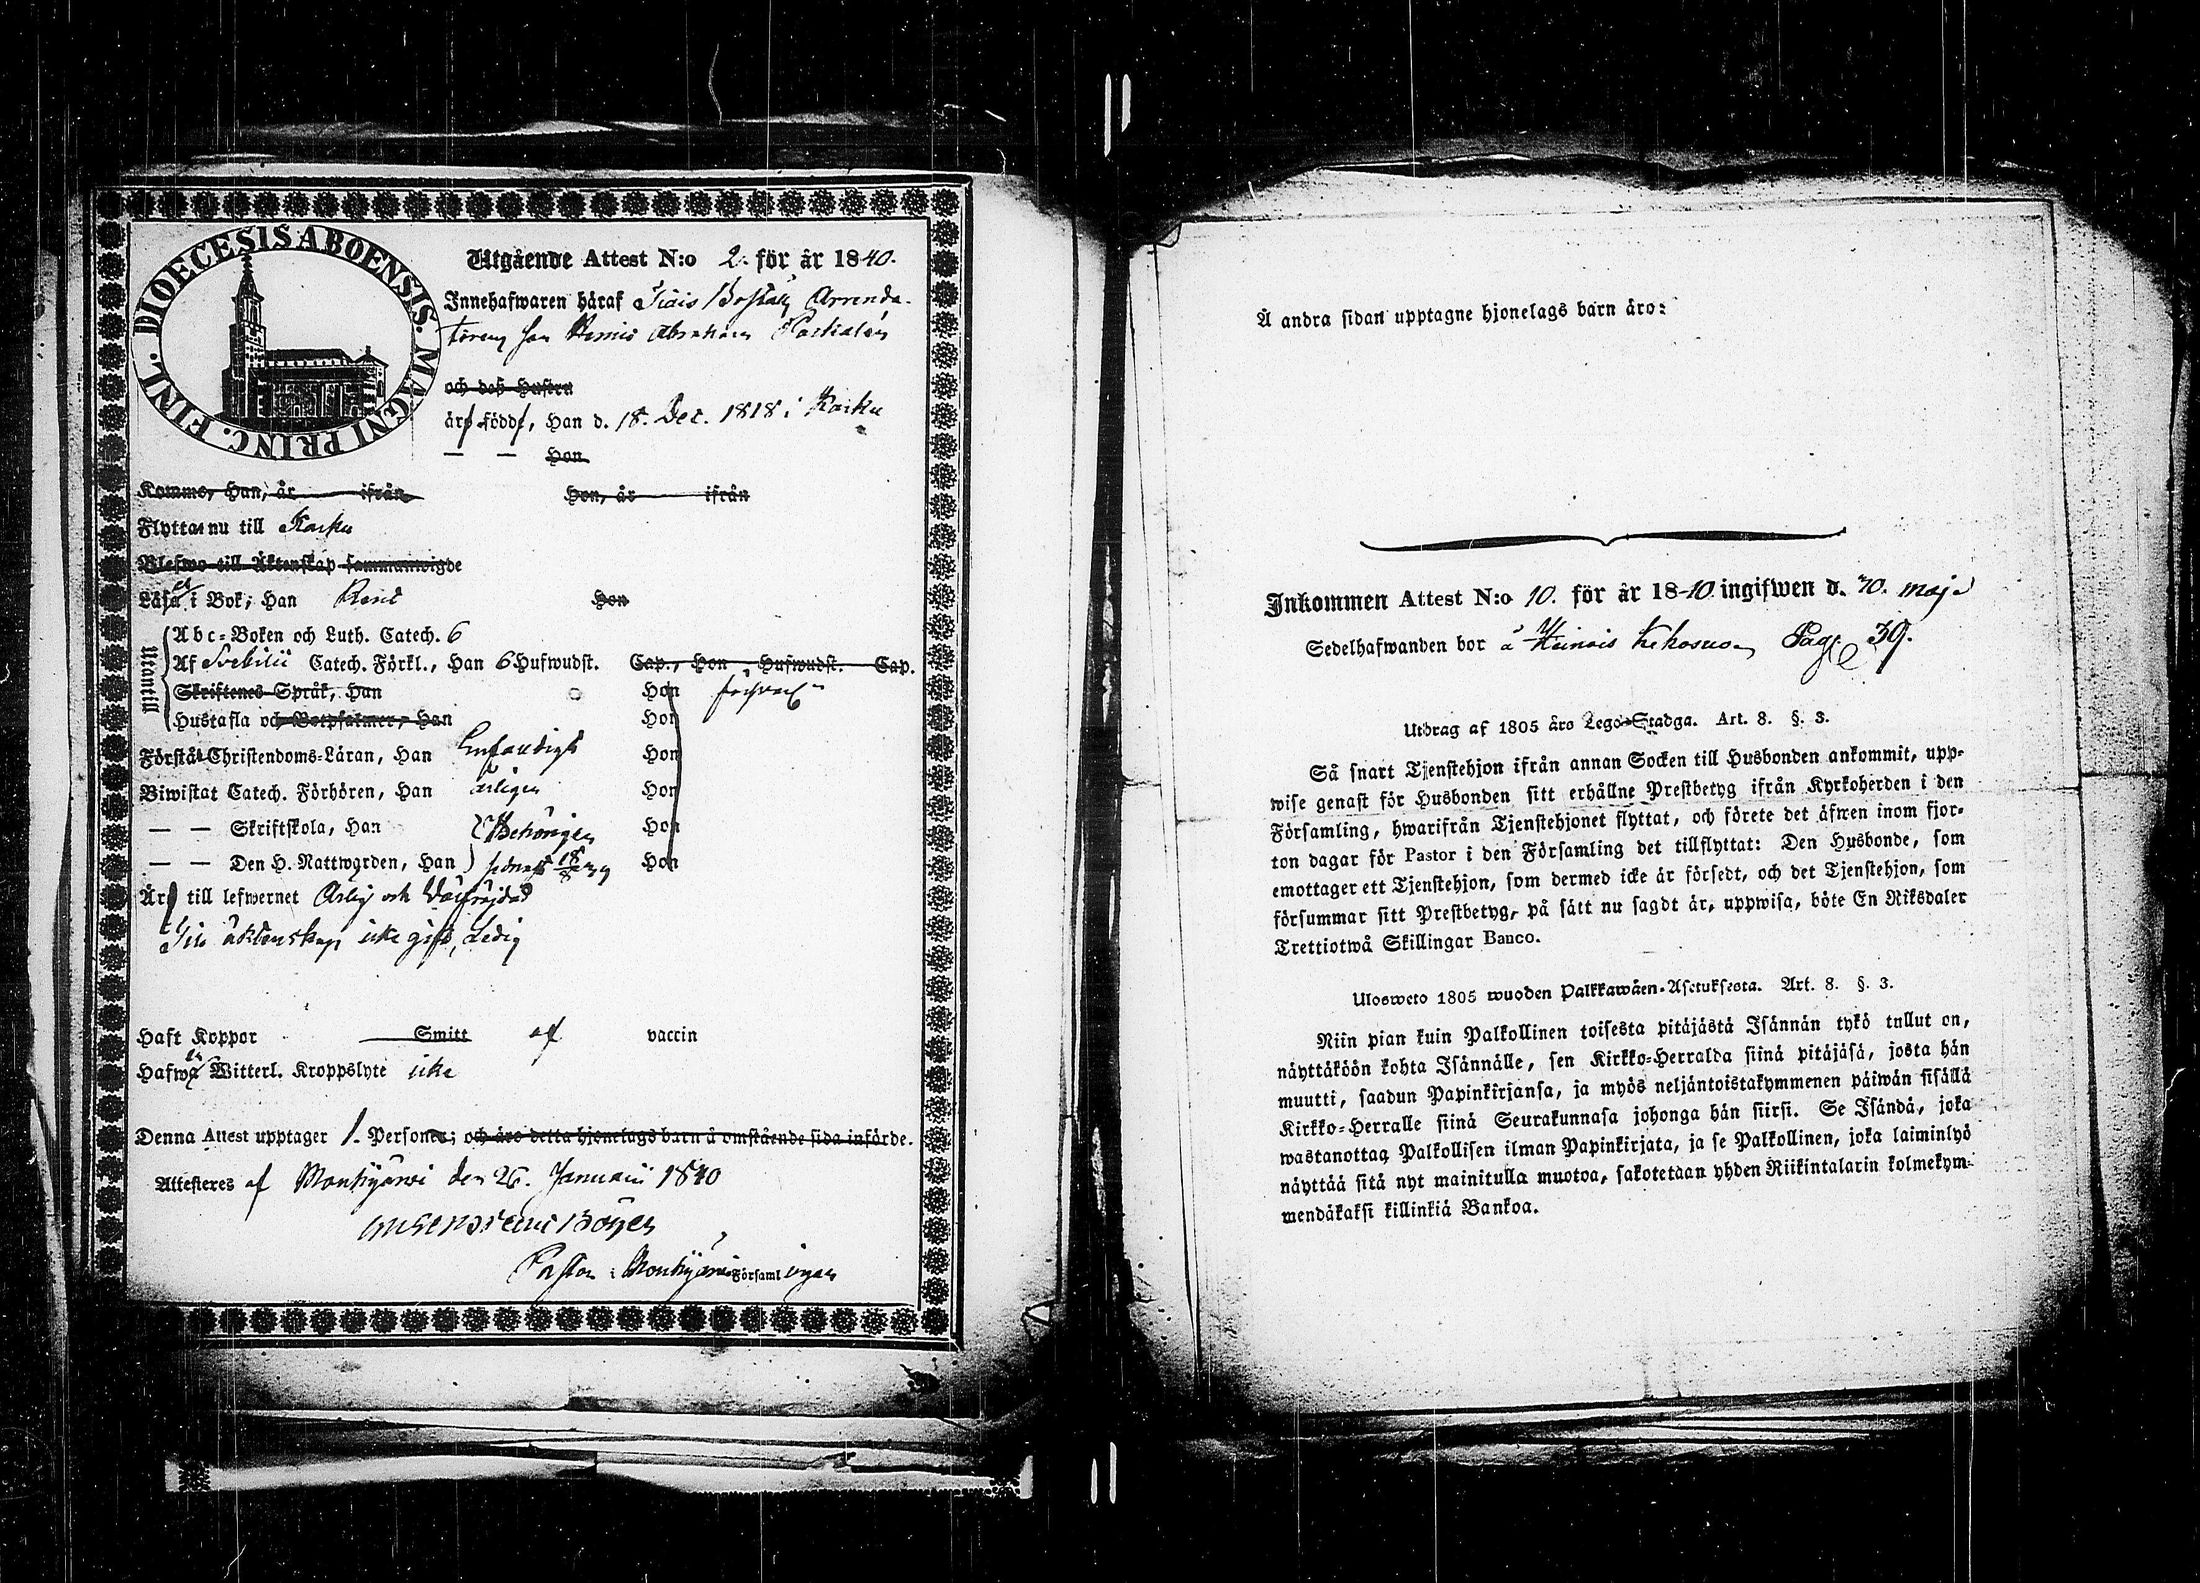 DIOECESIS ABOENSIS. MAGNI PRINC. FINL.
Utgående Attest N:o 2. för år 1840.
Innehafwaren häraf Arrenda-
torens son Abraham
och dess Hustru
äro födde, Han d. 18. Dec. 1818 i Karku
— — Hon
Komne, Han, år ifrån Hon, år ifrån
Flytta nu till Karku
Blefwo till Äktenskap sammanwigde
Läsa i Bok; Han Rent Hon
Utantill
Abc-Boken och Luth. Catech. 6
Af Svebilii Catech. Förkl., Han 6 Hufwudst. Cap., Hon Hufwudst. Cap.
Skriftenes Språk, Han Hon
Hustafla och Botpsalmer, Han Hon
Förstå Christendoms-Läran, Han Hon
Biwistat Catech. Förhören, Han årligen Hon
— — Skriftskola, Han Behörigen Hon
— — Den H. Nattwarden, Han sednast Hon
Äro till lefwernet Ärlig och Wälfrejdad
Till äktenskap icke gift, Ledig
Haft Koppor Smitt af vaccin
Hafwa Witterl. Kroppslyte icke
Denna Attest upptager 1. Personer; och äro detta hjonelags barn å omstående sida införde.
Attesteras af Mouhijärvi den 26. Januarii 1840
Pastor i Mouhijärvi Församlingen
Å andra sidan upptagne hjonelags barn äro:
Inkommen Attest N:o 10. för år 1840 ingifwen d. 10. maji
Sedelhafwanden bor å Heinois Pag: 39.
Utdrag af 1805 års Lego-Stadga. Art. 8. §. 3.
Så snart Tjenstehjon ifrån annan Socken till Husbonden ankommit, upp-
wise genast för Husbonden sitt erhållne Prestbetyg ifrån Kyrkoherden i den
Församling, hwarifrån Tjenstehjonet flyttat, och förete det äfwen inom fjor-
ton dagar för Pastor i den Församling det tillflyttat: Den Husbonde, som
emottager ett Tjenstehjon, som dermed icke är försedt, och det Tjenstehjon, som
försummar sitt Prestbetyg, på sätt nu sagdt är, uppwisa, böte En Riksdaler
Trettiotwå Skillingar Banco.
Ulosweto 1805 wuoden Palkkawäen-Asetuksesta. Art. 8. §. 3.
Niin pian kuin Palkollinen toisesta pitäjästä Isännän tykö tullut on,
näyttäköön kohta Isännälle, sen Kirkko-Herralda siinä pitäjäsä, josta hän
muutti, saadun Papinkirjansa, ja myös neljäntoistakymmenen päiwän sisällä
Kirkko-Herralle siinä Seurakunnasa johonga hän siirsi. Se Isändä, joka
wastanottaa Palkollisen ilman Papinkirjata, ja se Palkollinen, joka laiminlyö
näyttää sitä nyt mainitulla muotoa, sakotetaan yhden Riikintalarin kolmekym-
mendäkaksi killinkiä Bankoa.